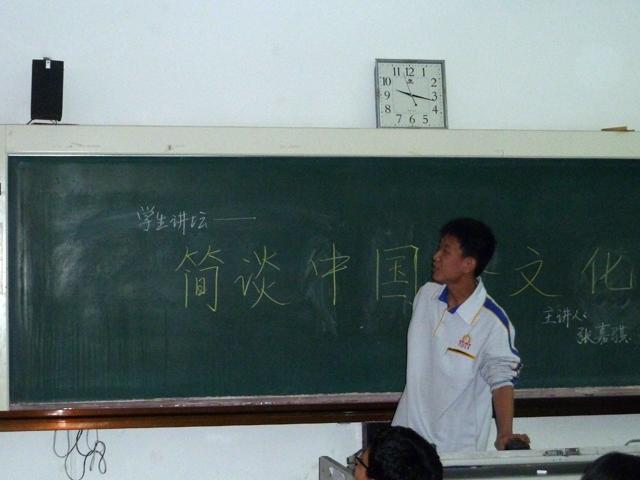 11 12 1
10 2
9 3
8 4
7 6 5
学生讲坛——
简谈中国 文化
主讲人:
张嘉骐